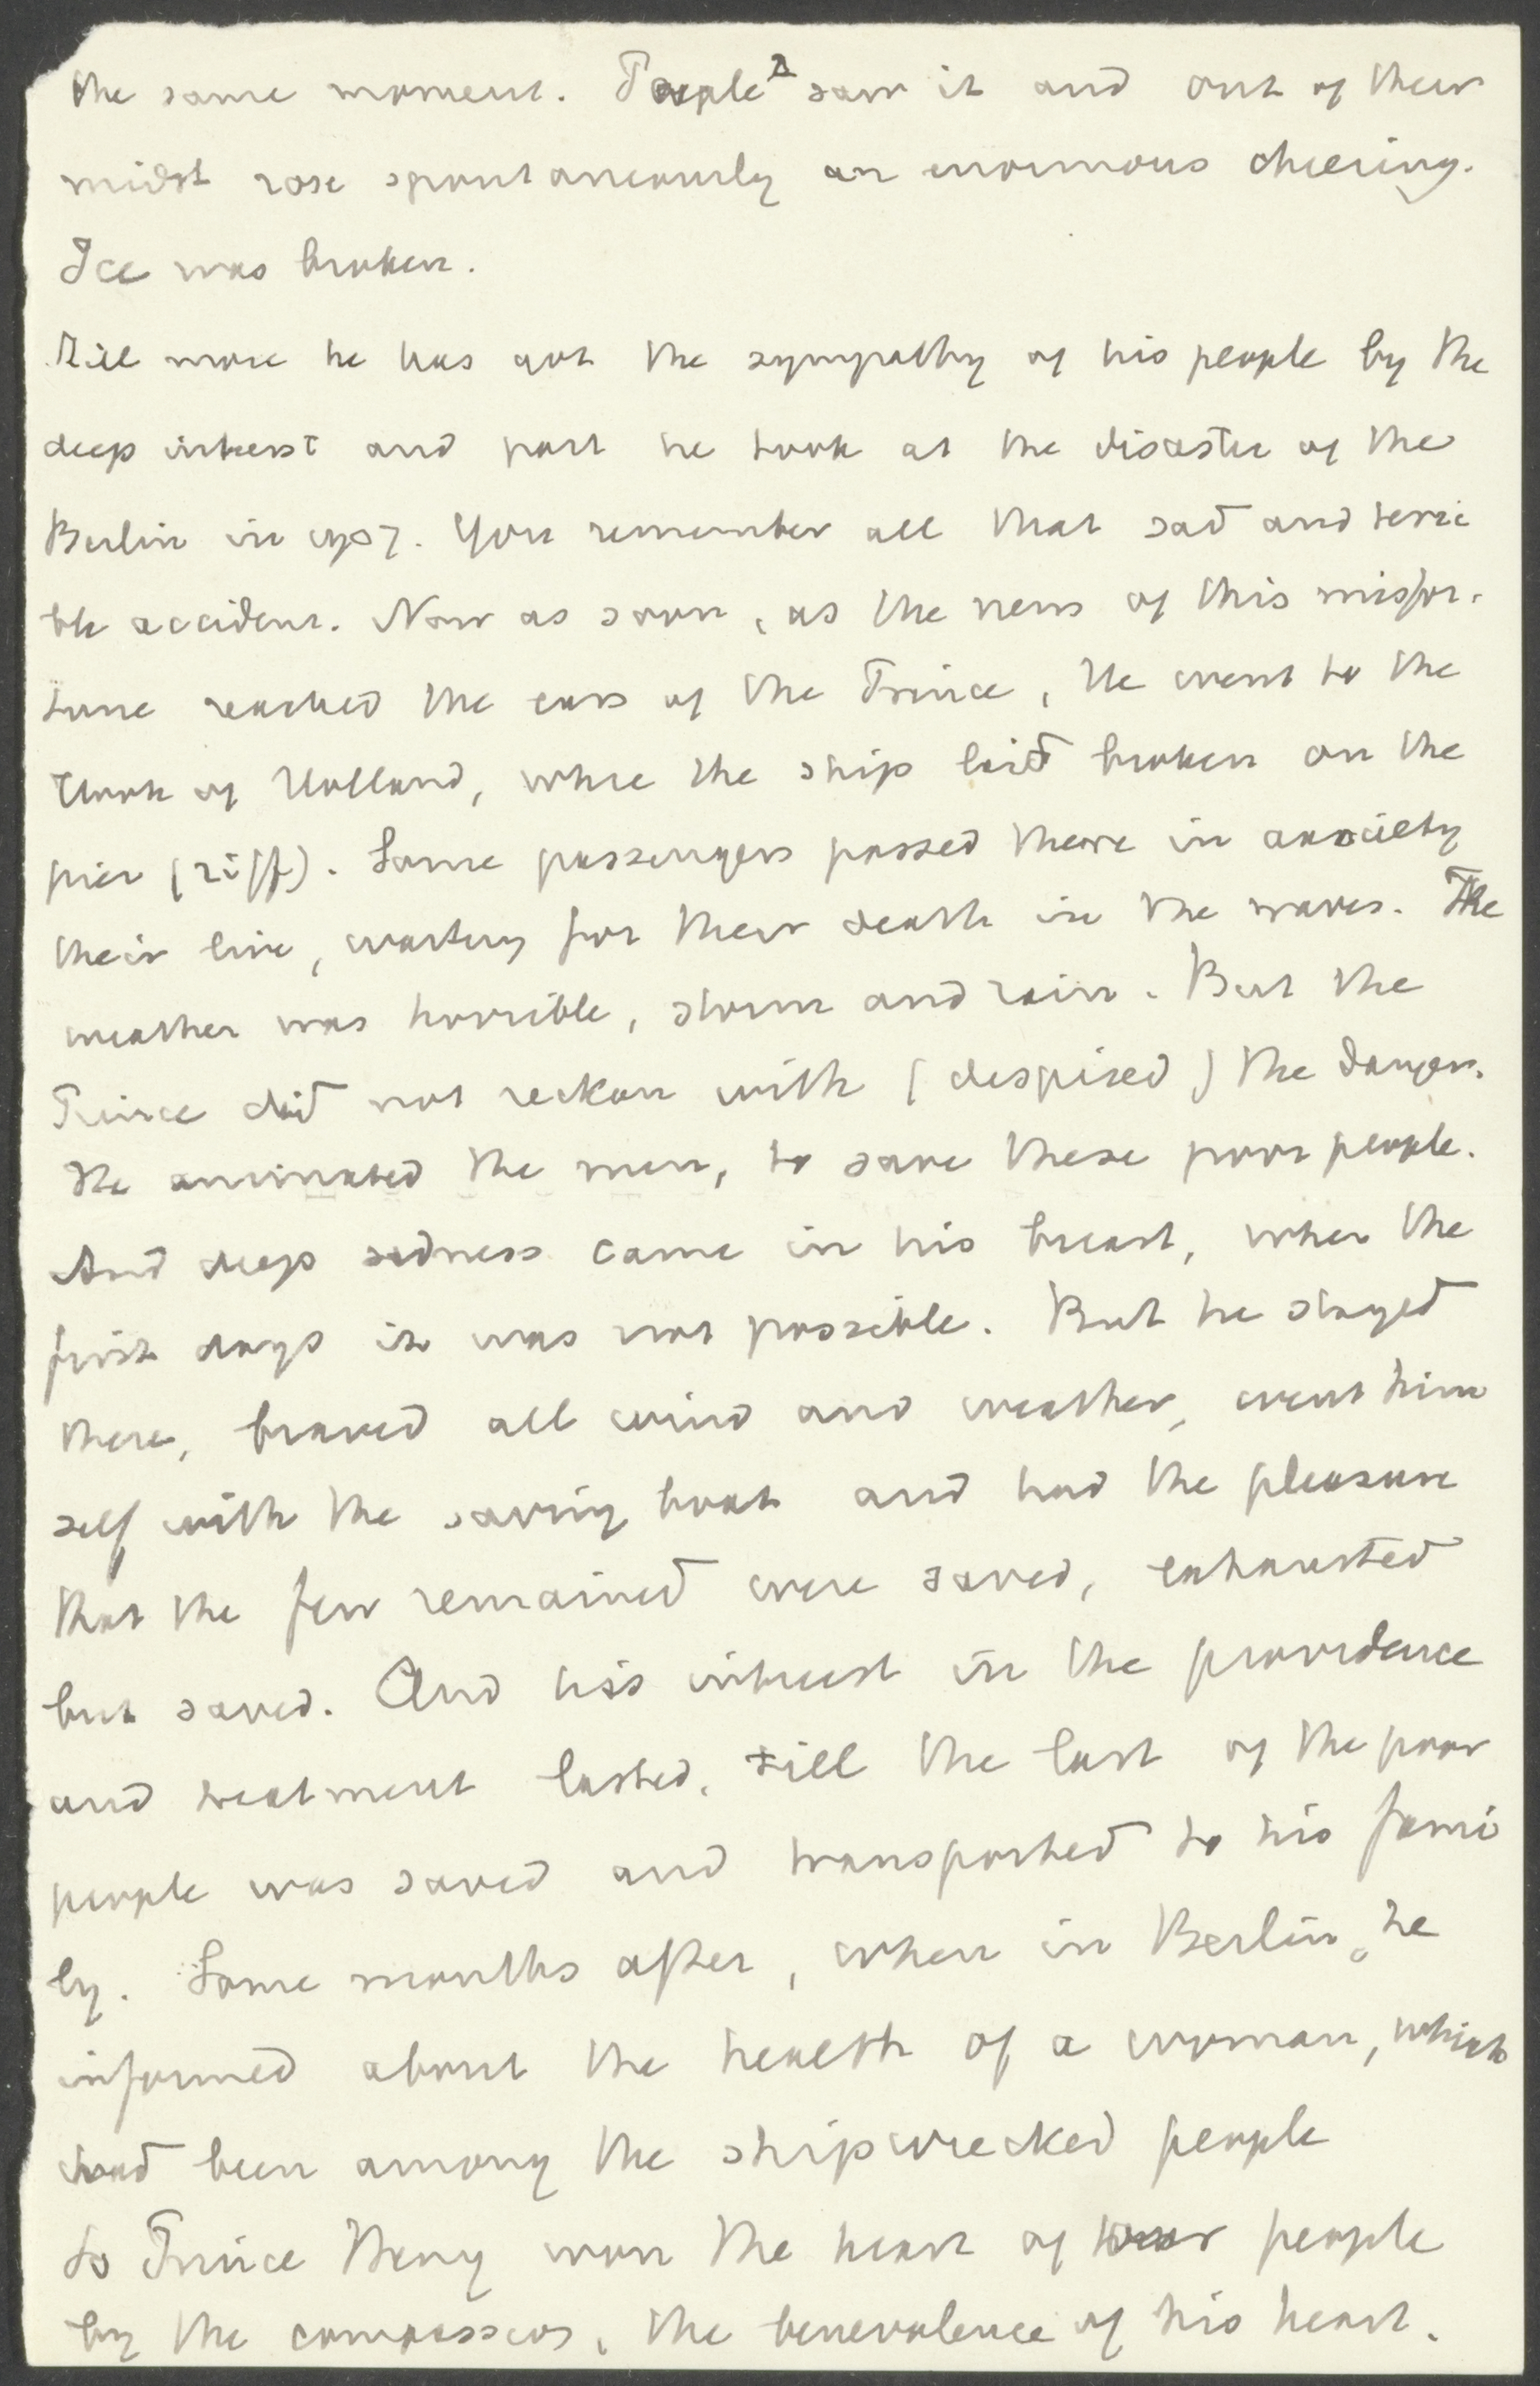 the same moment. People saw it and out of their
midst rose spontaneously an enormous cheering.
Ice was broken.
Still more he has got the sympathy of his people by the
deep interest and part he took at the disaster of the
Berlin in 1907. You remember all that sad and terri
ble accident. Now as soon, as the news of this misfor-
tune reached the ears of the Prince, He went to the
Hook of Holland, where the ship laid broken on the
pier (riff). Some passengers passed there in anxciety
their live, waiting for their death in the waves. The
weather was horrible, storm and rain. But the
Prince did not reckon with (despised) the danger.
He animated the men, to save these poor people.
And deep sadness came in his breast, when the
first days it was not possible. But he stayed
there, braved all wind and weather, went him
self with the saving boat and had the pleasure
that the few remained were saved, exhausted
but saved. And his interest in the providence
and treatment lasted, till the last of the poor
people was saved and transported to his fami
ly. Some months after, when in Berlin, he
informed about the health of a woman, which
had been among the shipwrecked people
So Prince Henry won the heart of people
by the compassion, the benevolence of his heart.